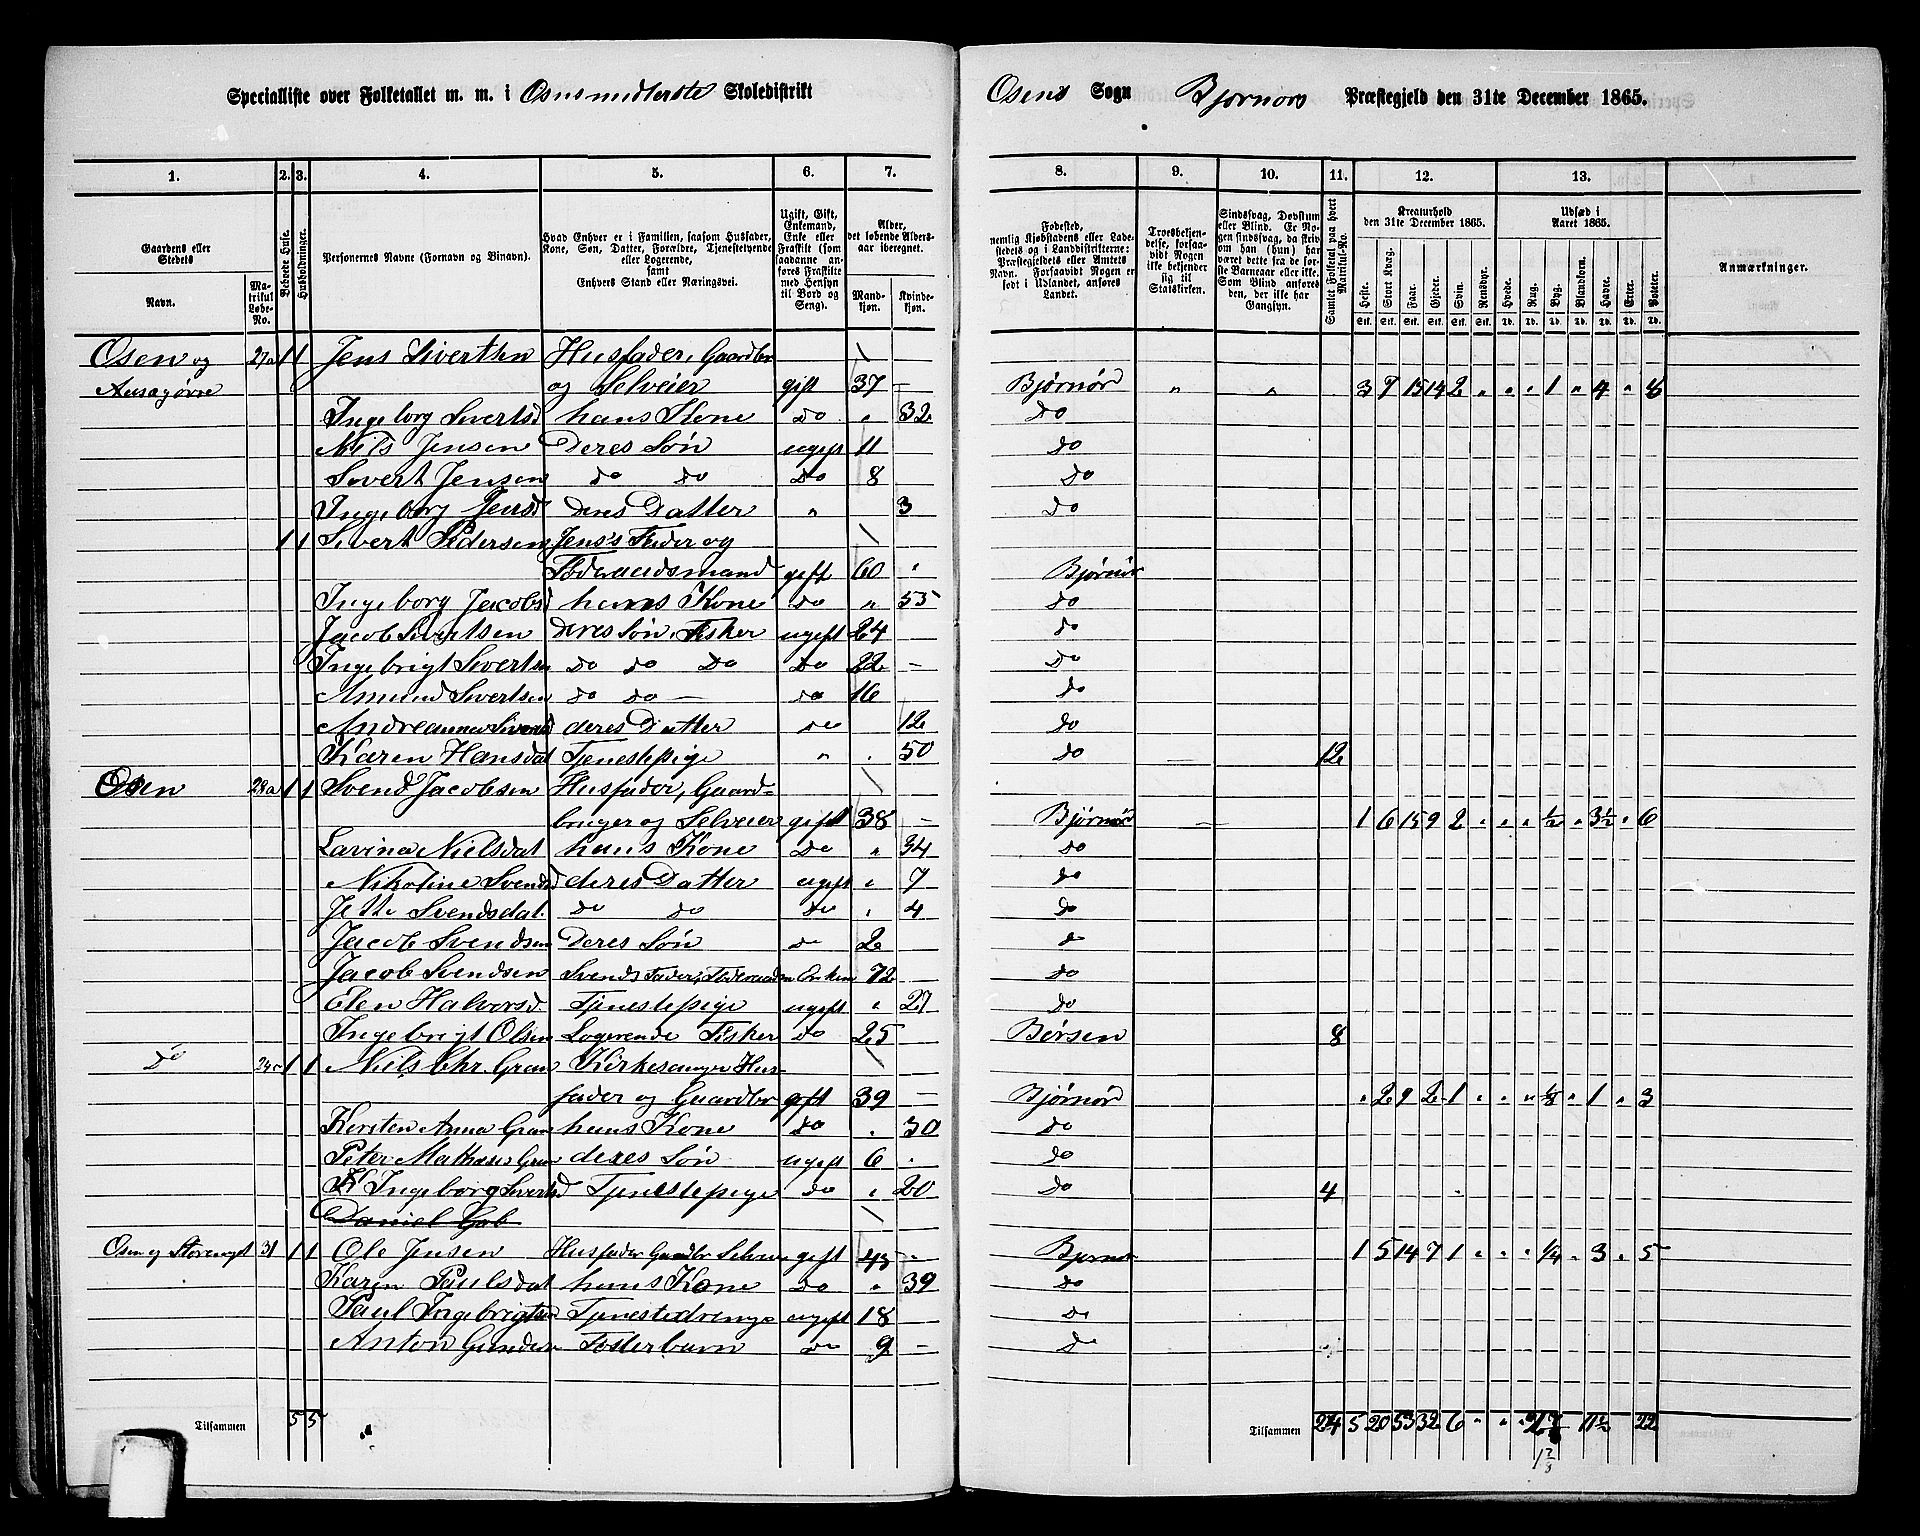 Specialliste over Folketallet m. m. i Osens midterste Skoledistrikt Osens Sogn Bjørnørs Præstegjeld den 31te December 1865.
1. 2. 3. 4. 5. 6. 7. 8. 9. 10. 11. 12. 13.
Gaardens eller Stedets
Navn. Matrikul Løbe-No.
Beboede Huse.
Husholdninger.
Personernes Navne (Fornavn og Binavn).
Hvad Enhver er i Familien, saasom Husfader, Kone, Søn, Datter, Forældre, Tjenestetyende eller Logerende, samt Enhvers Stand eller Næringsvei.
Ugift, Gift, Enkemand, Enke eller Fraskilte (som saadanne anføres Fraskilte med Hensyn til Bord og Seng).
Alder, det løbende Aldersaar iberegnet.
Mandkjøn. Kvindekjøn.
Fødested, nemlig Kjøbstadens eller Ladestedets og i Landdistrikterne: Præstegjeldets eller Amtets Navn. Forsaavidt Nogen er født i Udlandet, anføres Landet.
Troesbekjendelse, forsaavidt Nogen ikke bekjender sig til Statskirken.
Sindssvag, Døvstum eller Blind. Er Nogen sindssvag, da skriv om han (hun) har været dette fra de første Barneaar eller ikke. Som Blind anføres den, der ikke har Gangsyn.
Samlet Folketal paa hvert Matrikul-No.
Kreaturhold den 31te December 1865.
Heste. Stort Kvæg. Faar. Gjeder. Svin. Rensdyr.
Udsæd i Aaret 1865.
Hvede. Rug. Byg. Blandkorn. Havre. Erter. Poteter.
Anmærkninger.
Osen og 27a 1 1 Jens Sivertsen Husfader, Gaardbr
og Selveier gift 37 Bjørnør " " 3 7 15 14 2 " " " 1 " 4 " 8
Ingeborg Sivertsd hans Kone Do " 32 Do
Nils Jensen Deres Søn ugift 11 do
Sivert Jensen do do Do 8 do
Ingeborg Jensd deres Datter " 3 do
1 1 Sivert Pedersen Jens's Fader og
Føderaadsmand gift 60 Bjørnør
Ingeborg Jacobsd hans Kone do " 55 do
Jacob Sivertsen deres Søn, Fisker ugift 24 do
Ingebrigt Sivertsen do do do Do 22 do
Amund Sivertsen do do do 16 do
Andreanna Sivertsd deres Datter do 12 do
Karen Hansdat Tjenestepige " 50 do 12
Osen 28a 1 1 Svend Jacobsen Husfader, Gaard-
bruger og Selveier gift 38 Bjørnør 1 6 15 9 2 " " " 1/2 " 3 1/2 " 6
Lavina Nielsdat hans Kone Do " 34 do
Nikoline Svendsd deres Datter ugift " 7 do
Jette Svendsdat. do do do " 4 do
Jacob Svendsen Deres Søn do 2 do
Jacob Svendsen Svends Fader, Føderaadsm Enkem 72 do
Elen Halvorsd. Tjenestepige ugift " 27 do
Ingebrigt Olsen Logerende Fisker do 25 Børsen 8
Do 1 1 Niels Chr. Gran Kirkesanger Hus-
fader og Gaardbr gift 39 Bjørnør " 2 9 2 1 " " " 1/8 " 1 " 3
Kersten Anna Gran hans Kone do " 30 do
Peter Mathias Gran deres Søn ugift 6 do
Ingeborg Sivertsd Tjenestepige do " 20 do 4
Daniel Gab
Osen og 31 1 1 Ole Jensen Husfader Gaardbr Selvei gift 45 Bjørnør 1 5 14 7 1 " " " 1/4 " 3 " 5
Karen Paulsdat hans Kone do " 39 do
Paul Ingebrigtsen Tjenestedreng ugift 18 do
Anton Gunders Fosterbarn do 9 do
Tilsammen 5 5 Tilsammen 24 5 20 53 32 6 " " " 11 1/2 " 22
1 7/8